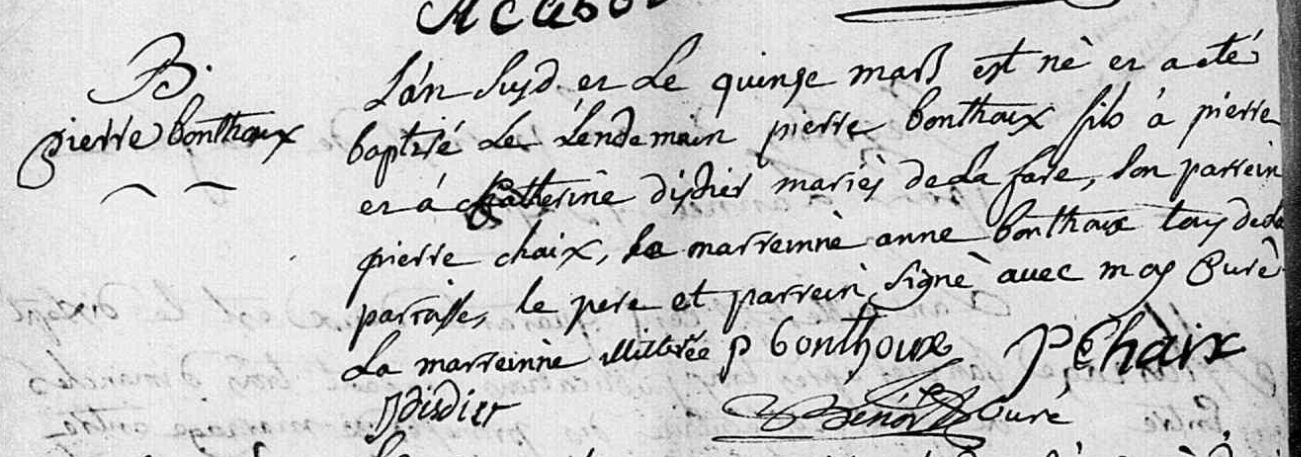 B.
pierre bonthoux
L'an susd et le quinze mars est né et a eté
baptisé le lendemain pierre bonthoux fils à pierre
et à Catherine disdier mariés de la fare, son parrein
pierre chaix, la marreinne anne bonthoux tous de la
parroisse, le pere et parrein signé avec moy Curé
la marreinne illiterée p bonthoux P Chaix
disdier Curé